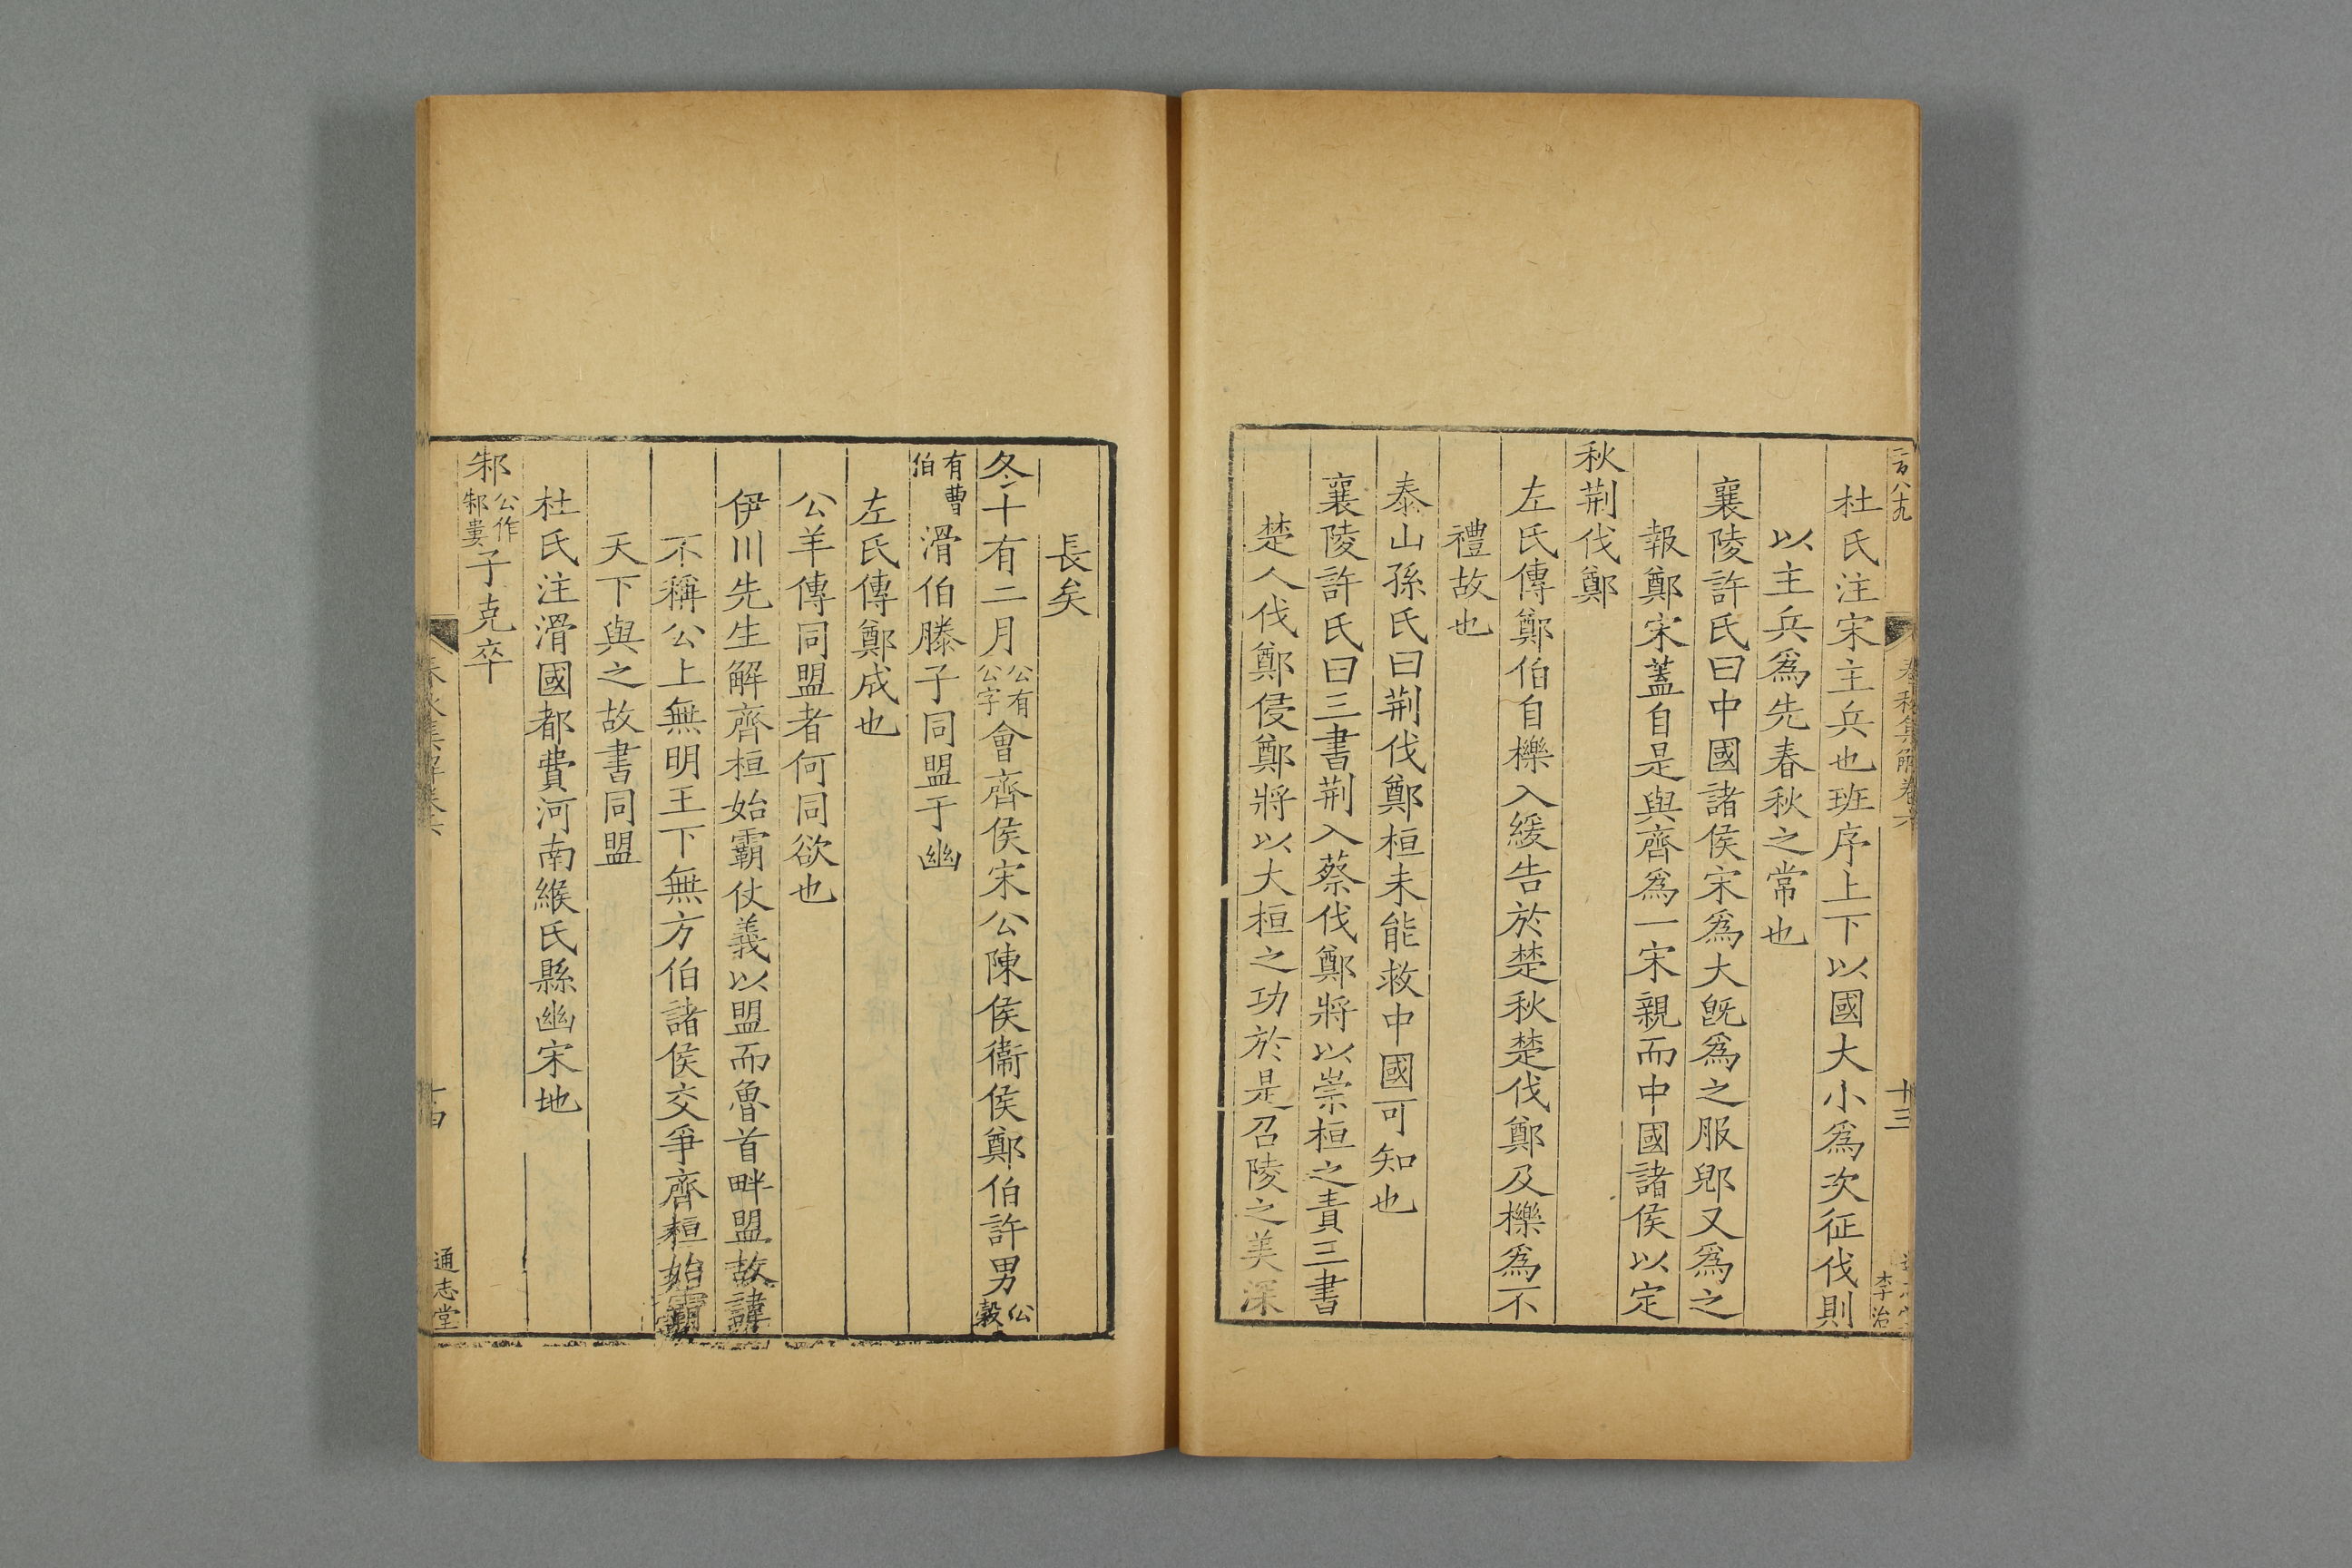 二百八九
春秋集解卷六
十三
李治
杜氏注宋主兵也班序上下以國大小爲次征伐則
以主兵爲先春秋之常也
襄陵許氏曰中國諸侯宋爲大旣爲之服郳又爲之
報鄭宋蓋自是與齊爲一宋親而中國諸侯以定
秋荆伐鄭
左氏傳鄭伯自櫟入緩告於楚秋楚伐鄭及櫟爲不
禮故也
泰山孫氏曰荆伐鄭桓未能救中國可知也
襄陵許氏曰三書荆入蔡伐鄭將以崇桓之責三書
楚人伐鄭侵鄭將以大桓之功於是召陵之美深
長矣
冬十有二月公有公字會齊侯宋公陳侯衞侯鄭伯許男公穀
有曹伯滑伯滕子同盟于幽
左氏傳鄭成也
公羊傳同盟者何同欲也
伊川先生解齊桓始霸仗義以盟而魯首畔盟故諱
不稱公上無明王下無方伯諸侯交爭齊桓始霸
天下與之故書同盟
杜氏注滑國都費河南緱氏縣幽宋地
邾公作邾婁子克卒
春秋集解卷六
十四
通志堂